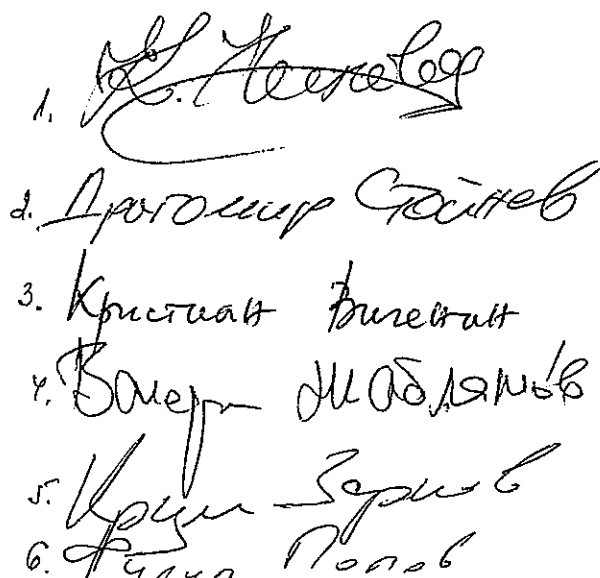 1. К. Нинова
2. Драгомир Стойнев
3. Кристиан Вигенин
4. Валери Жаблянов
5. Крум Зарков
6. Филип Попов